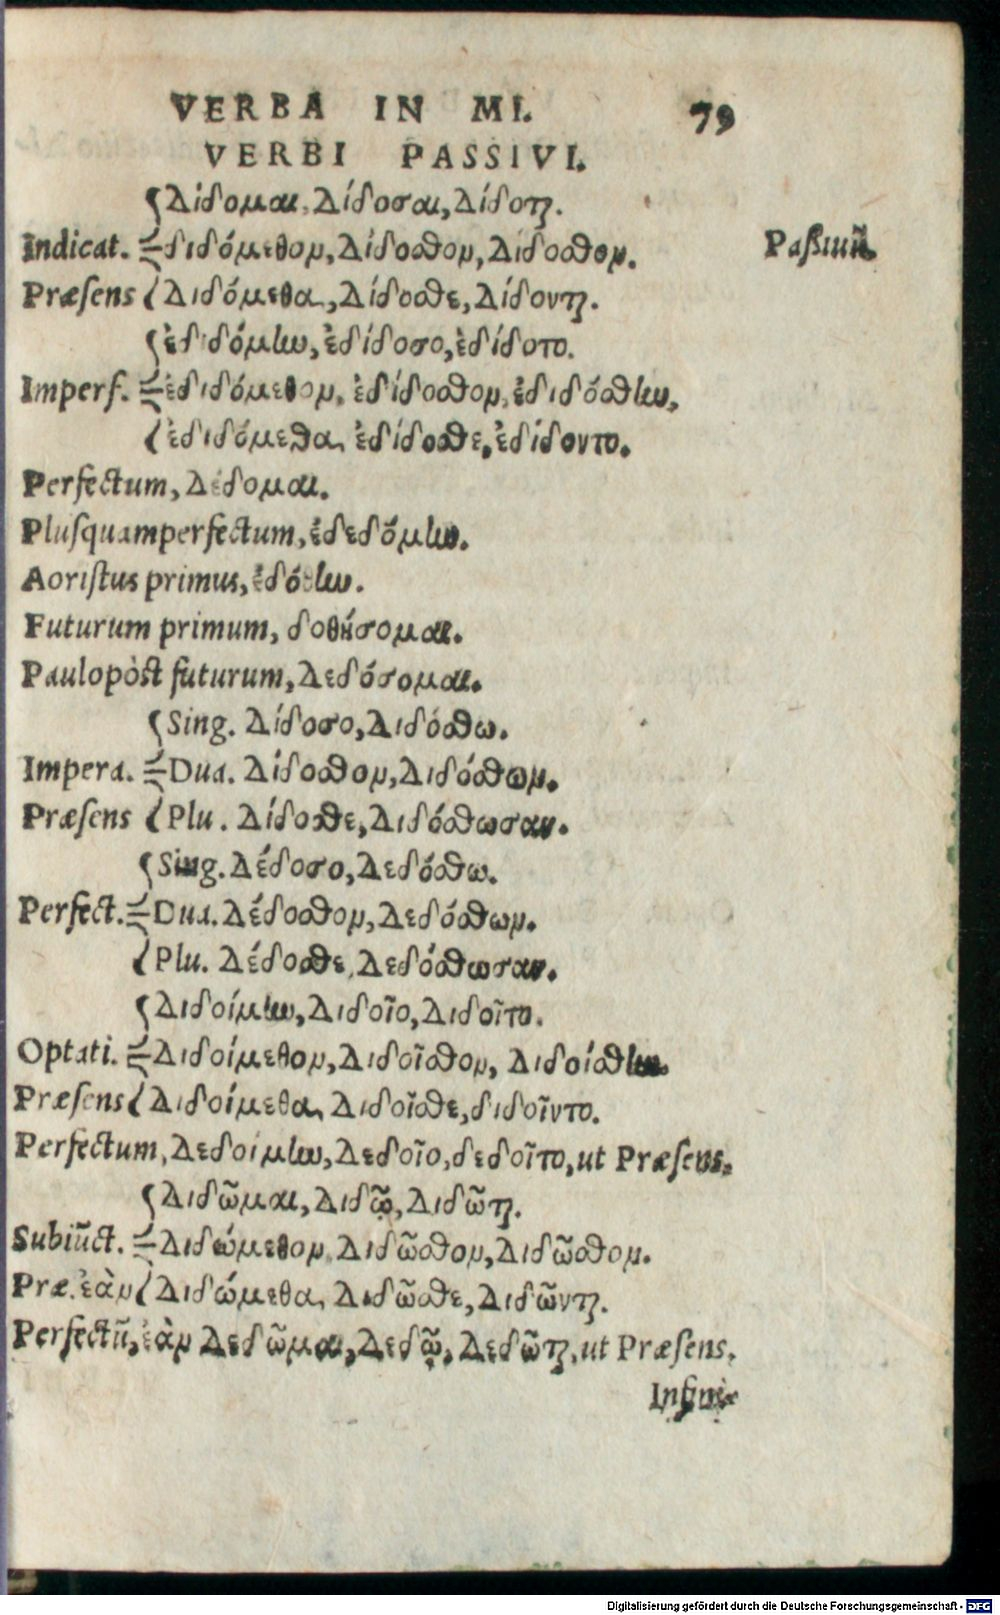 VERBA IN MI. 79
VERBI PASSIVI.
Δίδομαι, Δίδοσαι, Δίδοται.
Indicat. διδόμεθον, Δίδοσθον, Δίδοσθον. Paßiuũ
Præsens Διδόμεθα, Δίδοσθε, Δίδονται.
ἐδιδόμην, ἐδίδοσο, ἐδίδοτο.
Imperf. ἐδιδόμεθον, ἐδίδοσθον, ἐδιδόσθην,
ἐδιδόμεθα, ἐδίδοσθε, ἐδίδοντο.
Perfectum, Δέδομαι.
Plusquamperfectum, ἐδεδόμην.
Aoristus primus, ἐδόθην.
Futurum primum, δοθήσομαι.
Paulopòst futurum, Δεδόσομαι.
Sing. Δίδοσο, Διδόσθω.
Impera. Dua. Δίδοσθον, Διδόσθων.
Præsens Plu. Δίδοσθε, Διδόσθωσαν.
Sing. Δέδοσο, Δεδόσθω.
Perfect. Dua. Δέδοσθον, Δεδόσθων.
Plu. Δέδοσθε, Δεδόσθωσαν.
Διδοίμην, Διδοῖο, Διδοῖτο.
Optati. Διδοίμεθον, Διδοῖσθον, Διδοίσθην
Præsens Διδοίμεθα, Διδοῖσθε, διδοῖντο.
Perfectum, Δεδοίμην, Δεδοῖο, δεδοῖτο, ut Præsens.
Διδῶμαι, Διδῷ, Διδῶται.
Subiũct. Διδώμεθον, Διδῶσθον, Διδῶσθον.
Præ. ἐὰν Διδώμεθα, Διδῶσθε, Διδῶνται.
Perfectũ, ἐὰν Δεδῶμαι, Δεδῷ, Δεδῶται, ut Præsens.
Infini-
Digitalisierung gefördert durch die Deutsche Forschungsgemeinschaft - DFG